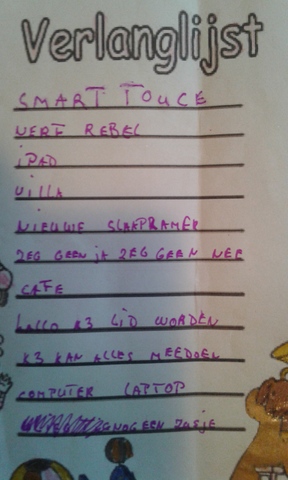 Verlanglijst
SMART TOUCE
NERF REBEL
iPAD
VILLA
NIEUWE SLAAPKAMER
ZEG GEEN jA ZEG GEEN NEE
CAFE
HALLO K3 LID WORDEN
K3 KAN ALLES MEEDOEN
COMPUTER LAPTOP
NOG EEN ZUSJE